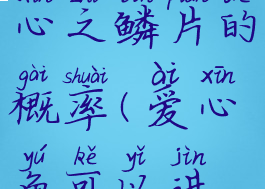 心之鳞片的
gài shuài ài xīn
概率(爱心
yú kě yǐ jìn
鱼可以进